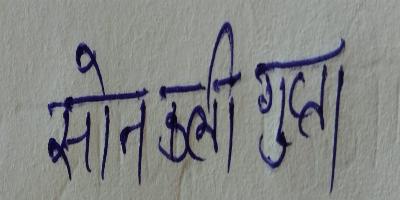 सोनाली गुप्ता